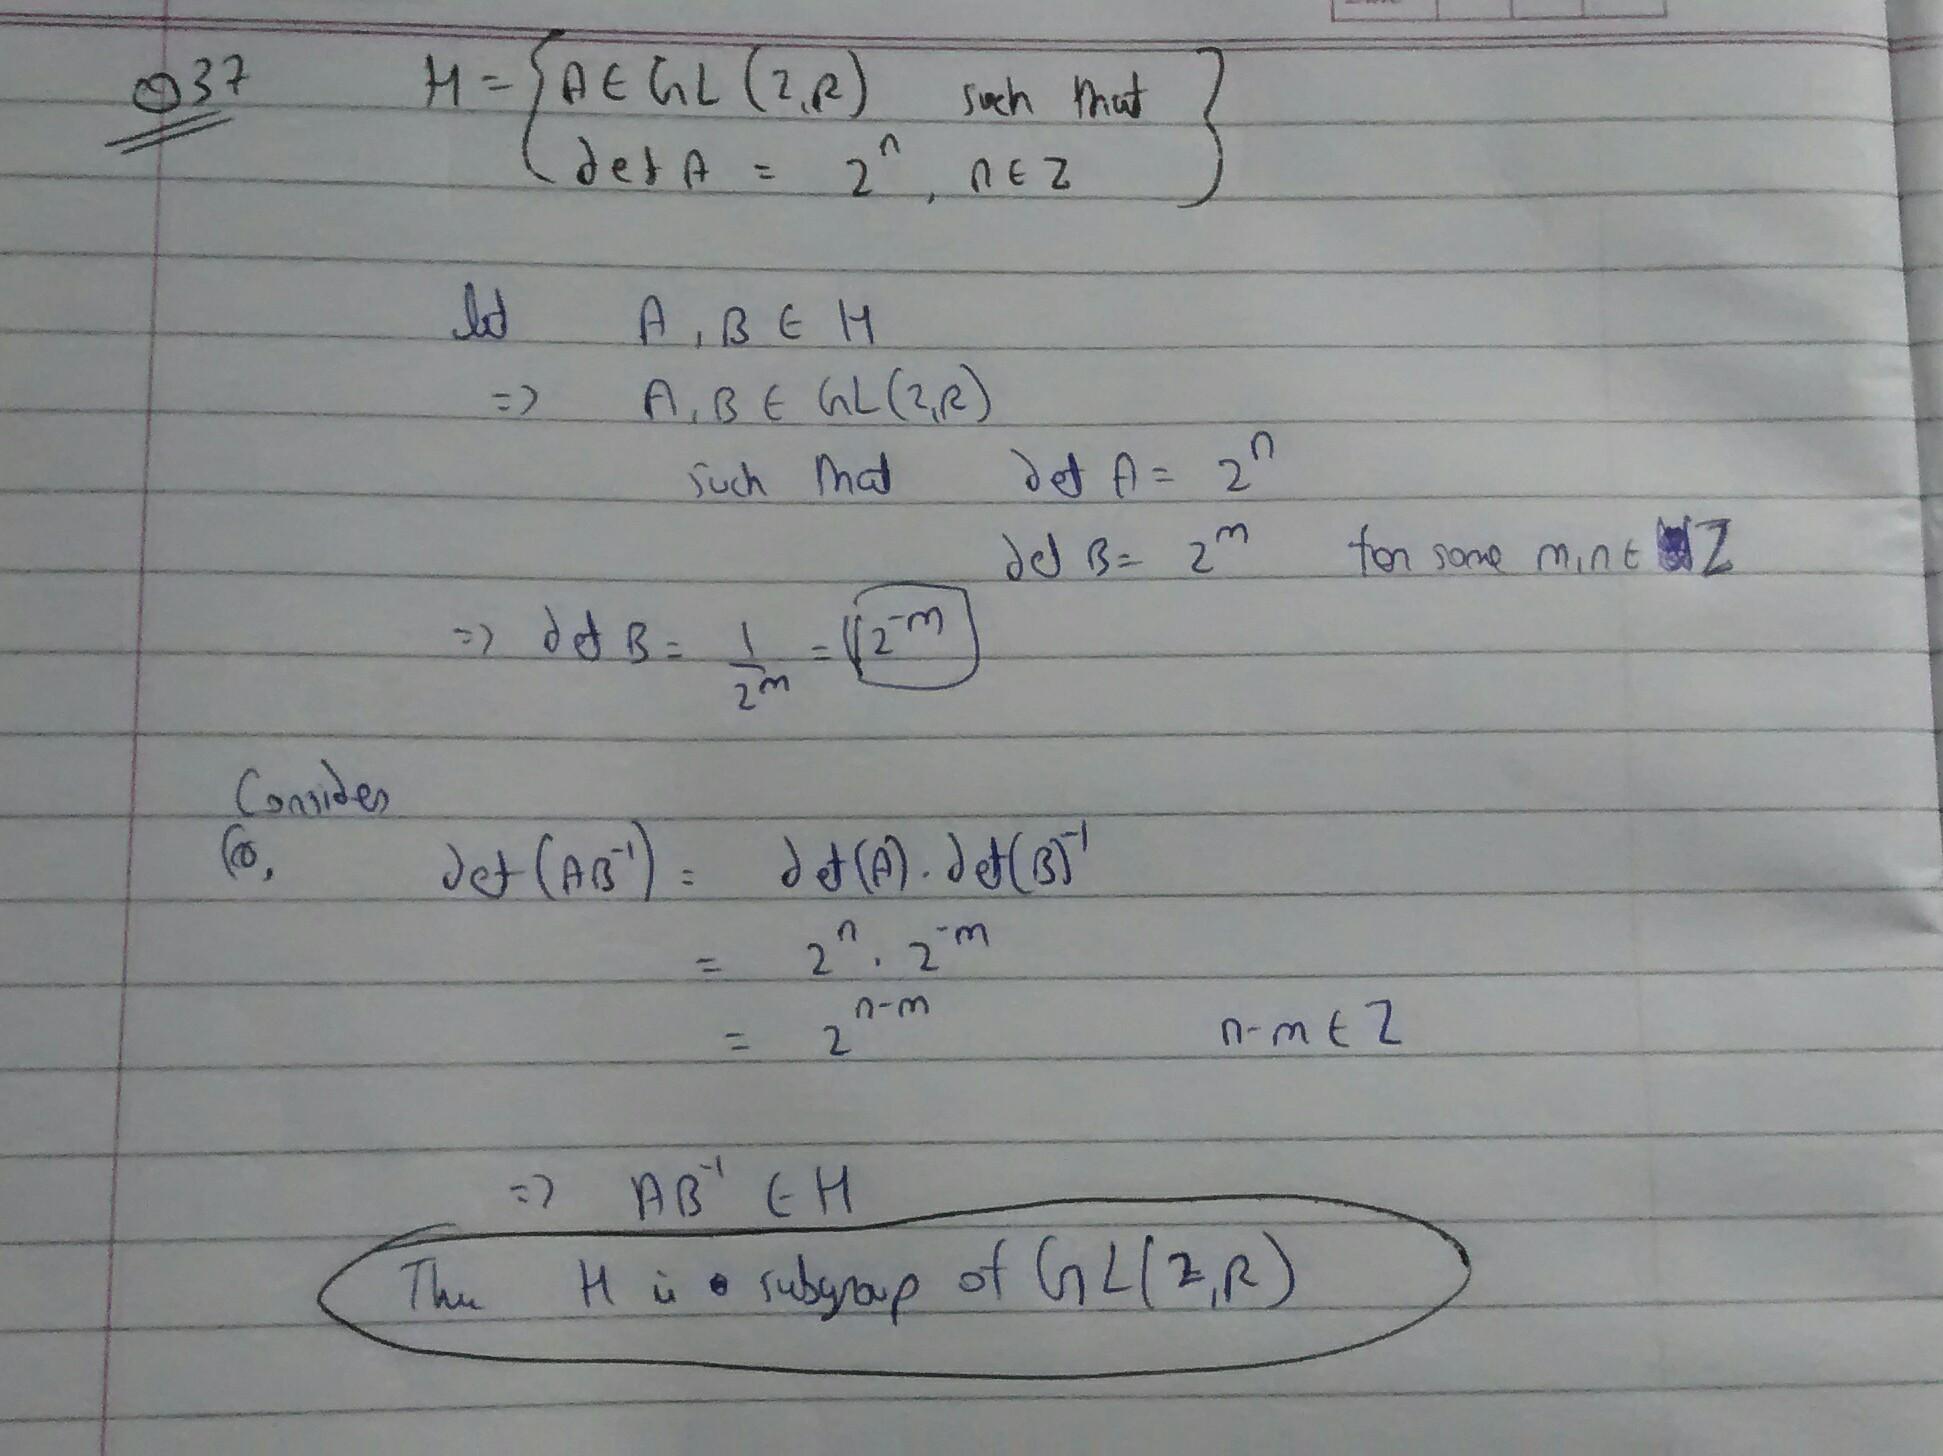 Q37 H = { A ∈ GL(2,R) such that
det A = 2ⁿ, n ∈ Z }
let A, B ∈ H
=> A, B ∈ GL(2,R)
such that det A = 2ⁿ
det B = 2ᵐ for some m, n ∈ Z
=> det B = 1/2ᵐ = 2⁻ᵐ
Consider
det(AB⁻¹) = det(A). det(B)⁻¹
= 2ⁿ. 2⁻ᵐ
= 2ⁿ⁻ᵐ n-m ∈ Z
=> AB⁻¹ ∈ H
Thus H is subgroup of GL(2,R)